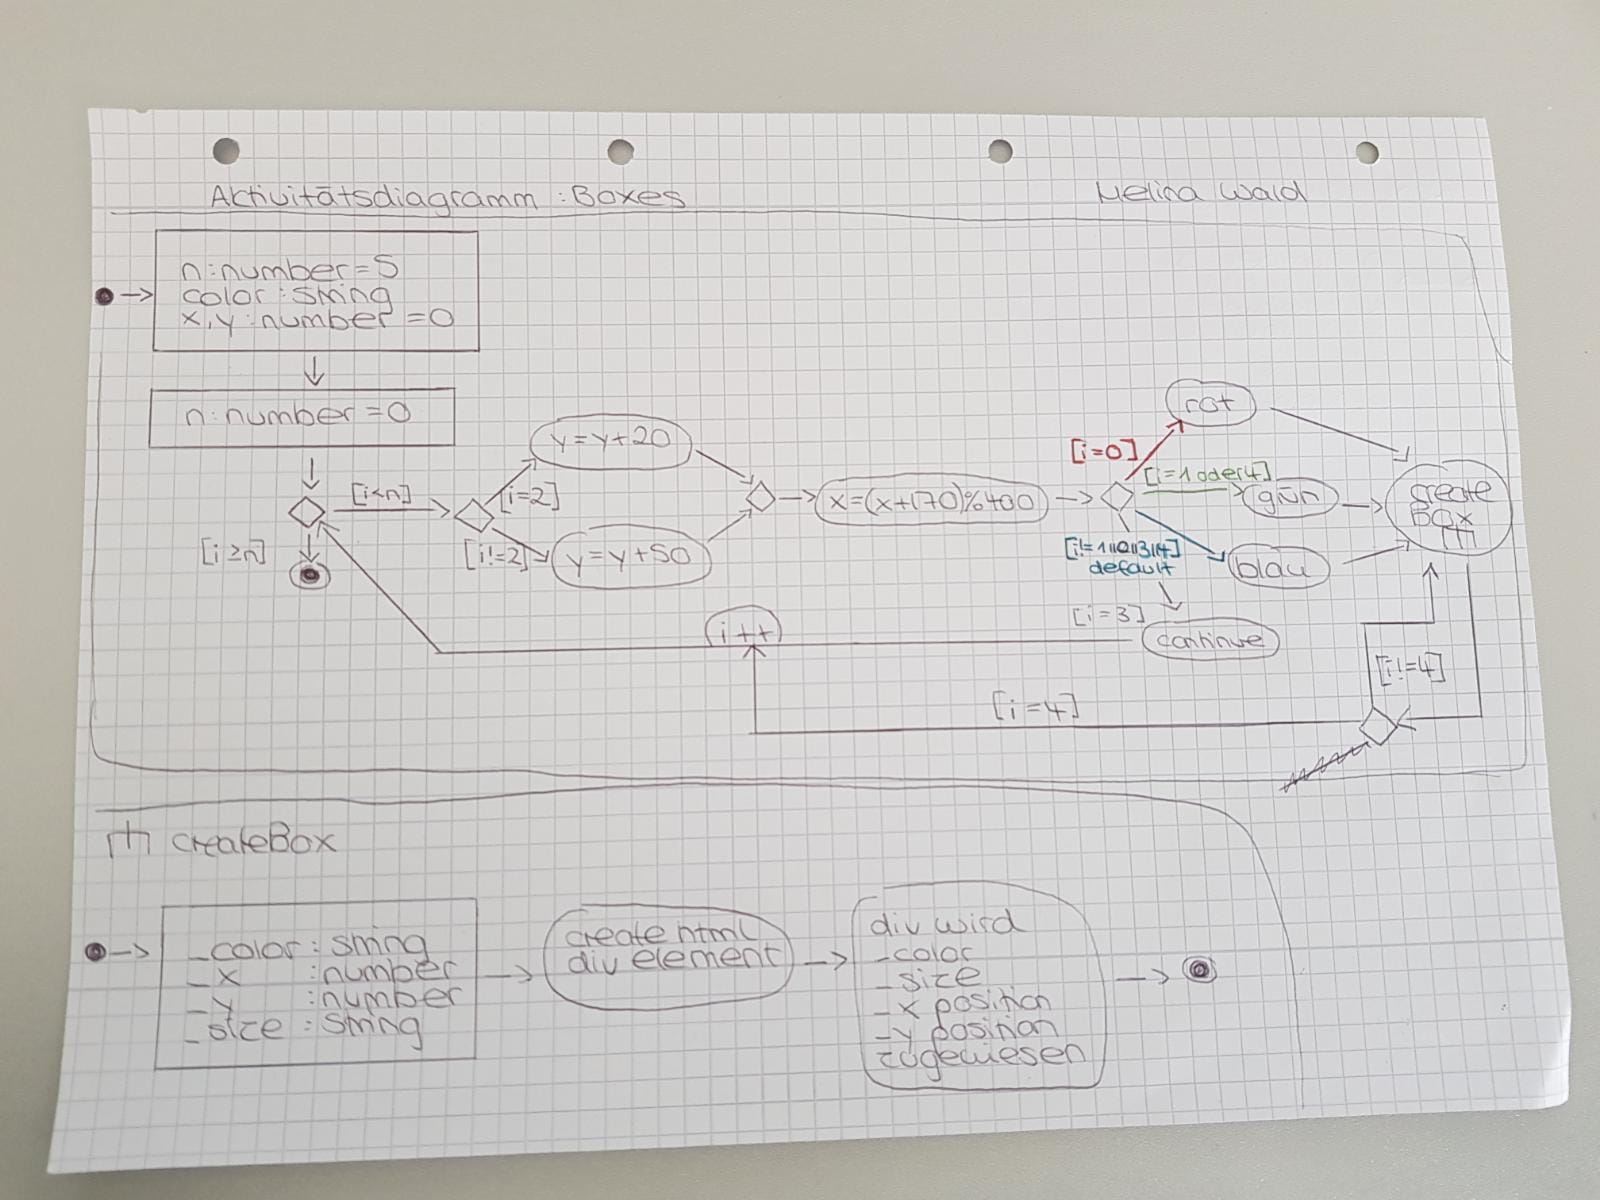 Aktivitätsdiagramm : Boxes
Melina Wald
n: number = 5
color : string
x, y : number = 0
n: number = 0
[i<n]
[i≥n]
[i=2]
[i!=2]
y=y+20
y=y+50
x=(x+170)%400
[i=0]
rot
[i=1 oder 4]
grün
[i!=1||0||3||4]
default
blau
[i=3]
continue
create
box
i++
[i!=4]
[i=4]
createBox
_color : string
_x : number
_y : number
_size : string
create html
div element
div wird
-color
-size
-x position
-y position
zugewiesen